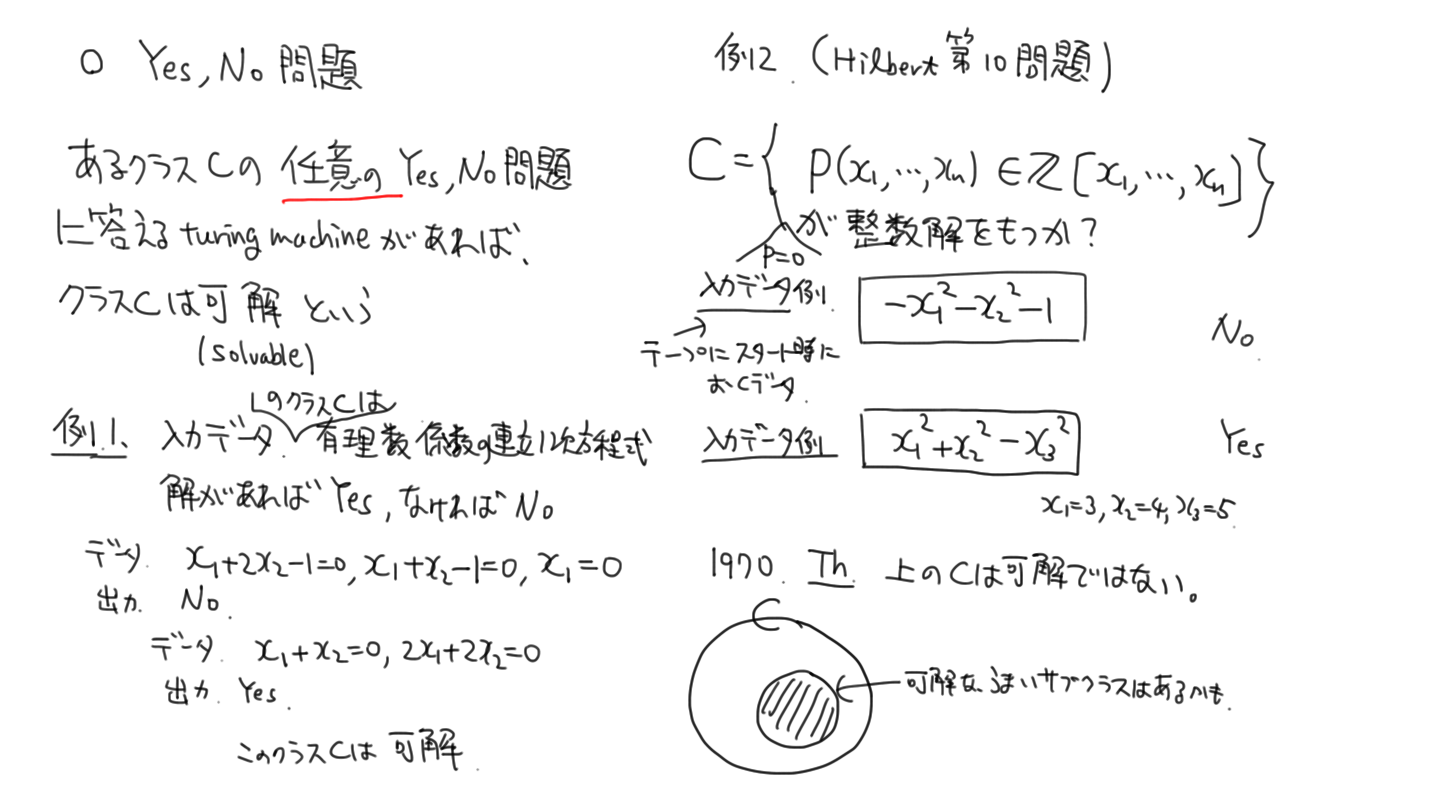 ○ Yes, No 問題
あるクラス C の 任意の Yes, No 問題
に答える turing machine があれば、
クラス C は可解 という
(solvable)
このクラス C は
例 1. 入力データ 有理数係数の連立1次方程式
解があれば Yes, なければ No
データ x₁+2x₂-1=0, x₁+x₂-1=0, x₁=0
出力 No.
データ x₁+x₂=0, 2x₁+2x₂=0
出力 Yes.
このクラス C は 可解.
例 2. (Hilbert 第 10 問題)
C = { P(x₁,…,xₙ) ∈ ℤ [x₁,…,xₙ] }
が 整数解をもつか?
P=0
入力データ例 -x₁²-x₂²-1 No.
テープにスタート時に
おくデータ.
入力データ例 x₁²+x₂²-x₃² Yes
x₁=3, x₂=4, x₃=5.
1970. Th. 上の C は可解ではない。
C
可解な、うまいサブクラスはあるかも.